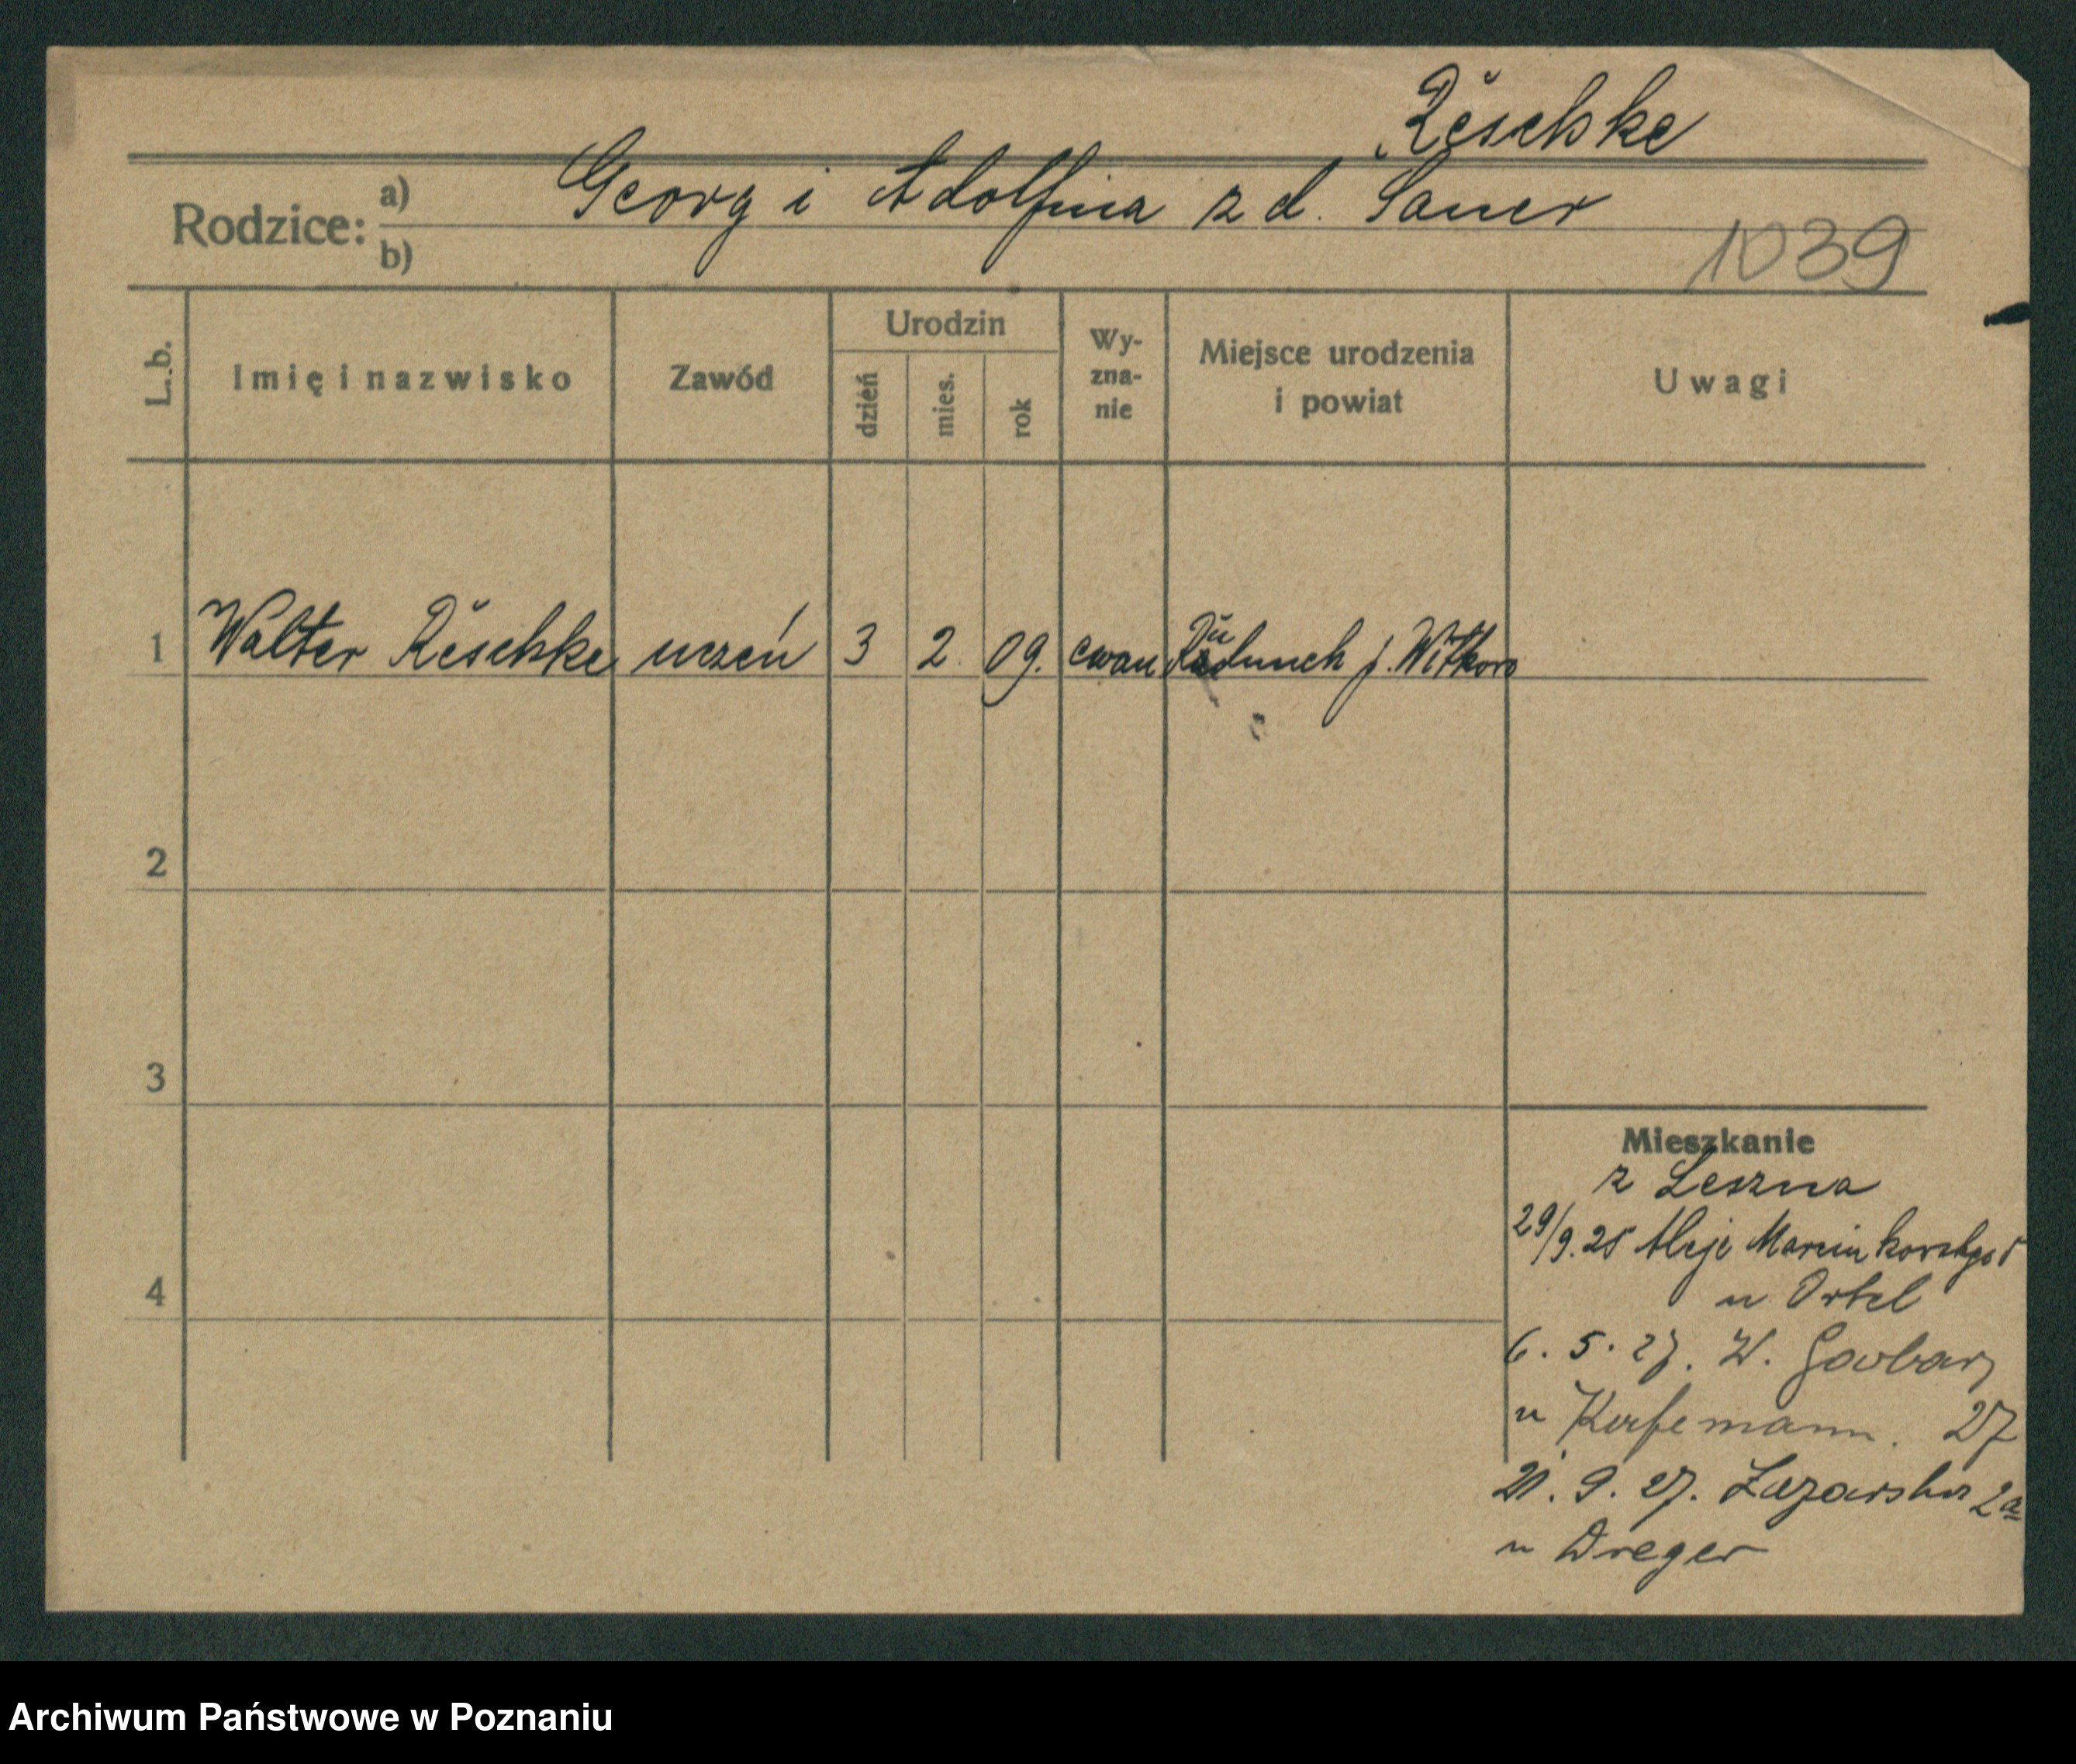 Reschke
Rodzice: a) Georg i Adolfina z d. Sauer
b)
1039
L. b. Imię i nazwisko Zawód Urodzin dzień mies. rok Wyznanie Miejsce urodzenia i powiat Uwagi
1 Walter Reschke uczeń 3 2. 09. ewan p. Witkowo
2
3
4
Mieszkanie
z Leszna
29/9.25 Aleje Marcinkowskiego
u Ortel
6. 5. 27. W. Garbary
u 27
21. 9. 27. Łazarska 2a
u Dreger
Archiwum Państwowe w Poznaniu